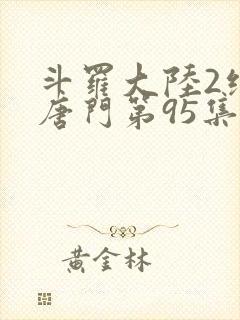 斗羅大陸2絕
唐門第95集
黃金林